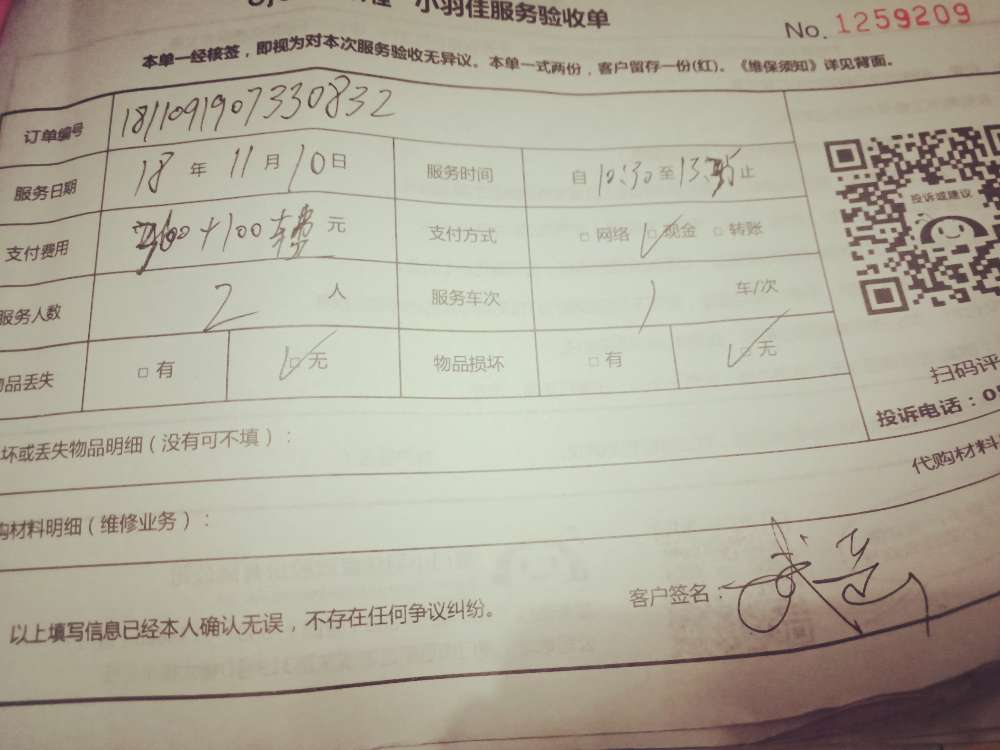 小羽佳服务验收单
No. 1259209
本单一经核签，即视为对本次服务验收无异议。本单一式两份，客户留存一份(红)。《维保须知》详见背面。
订单编号 181109190733083​2
服务日期 18 年 11 月 10 日 服务时间 自 10:30 至 13: 止
支付费用 +100 元 支付方式 □ 网络 ☑ 现金 □ 转账
服务人数 2 人 服务车次 1 车/次
物品丢失 □ 有 ☑ 无 物品损坏 □ 有 ☑ 无
投诉或建议
扫码评
投诉电话：0
坏或丢失物品明细（没有可不填）：
代购材料
购材料明细（维修业务）：
以上填写信息已经本人确认无误，不存在任何争议纠纷。
客户签名：